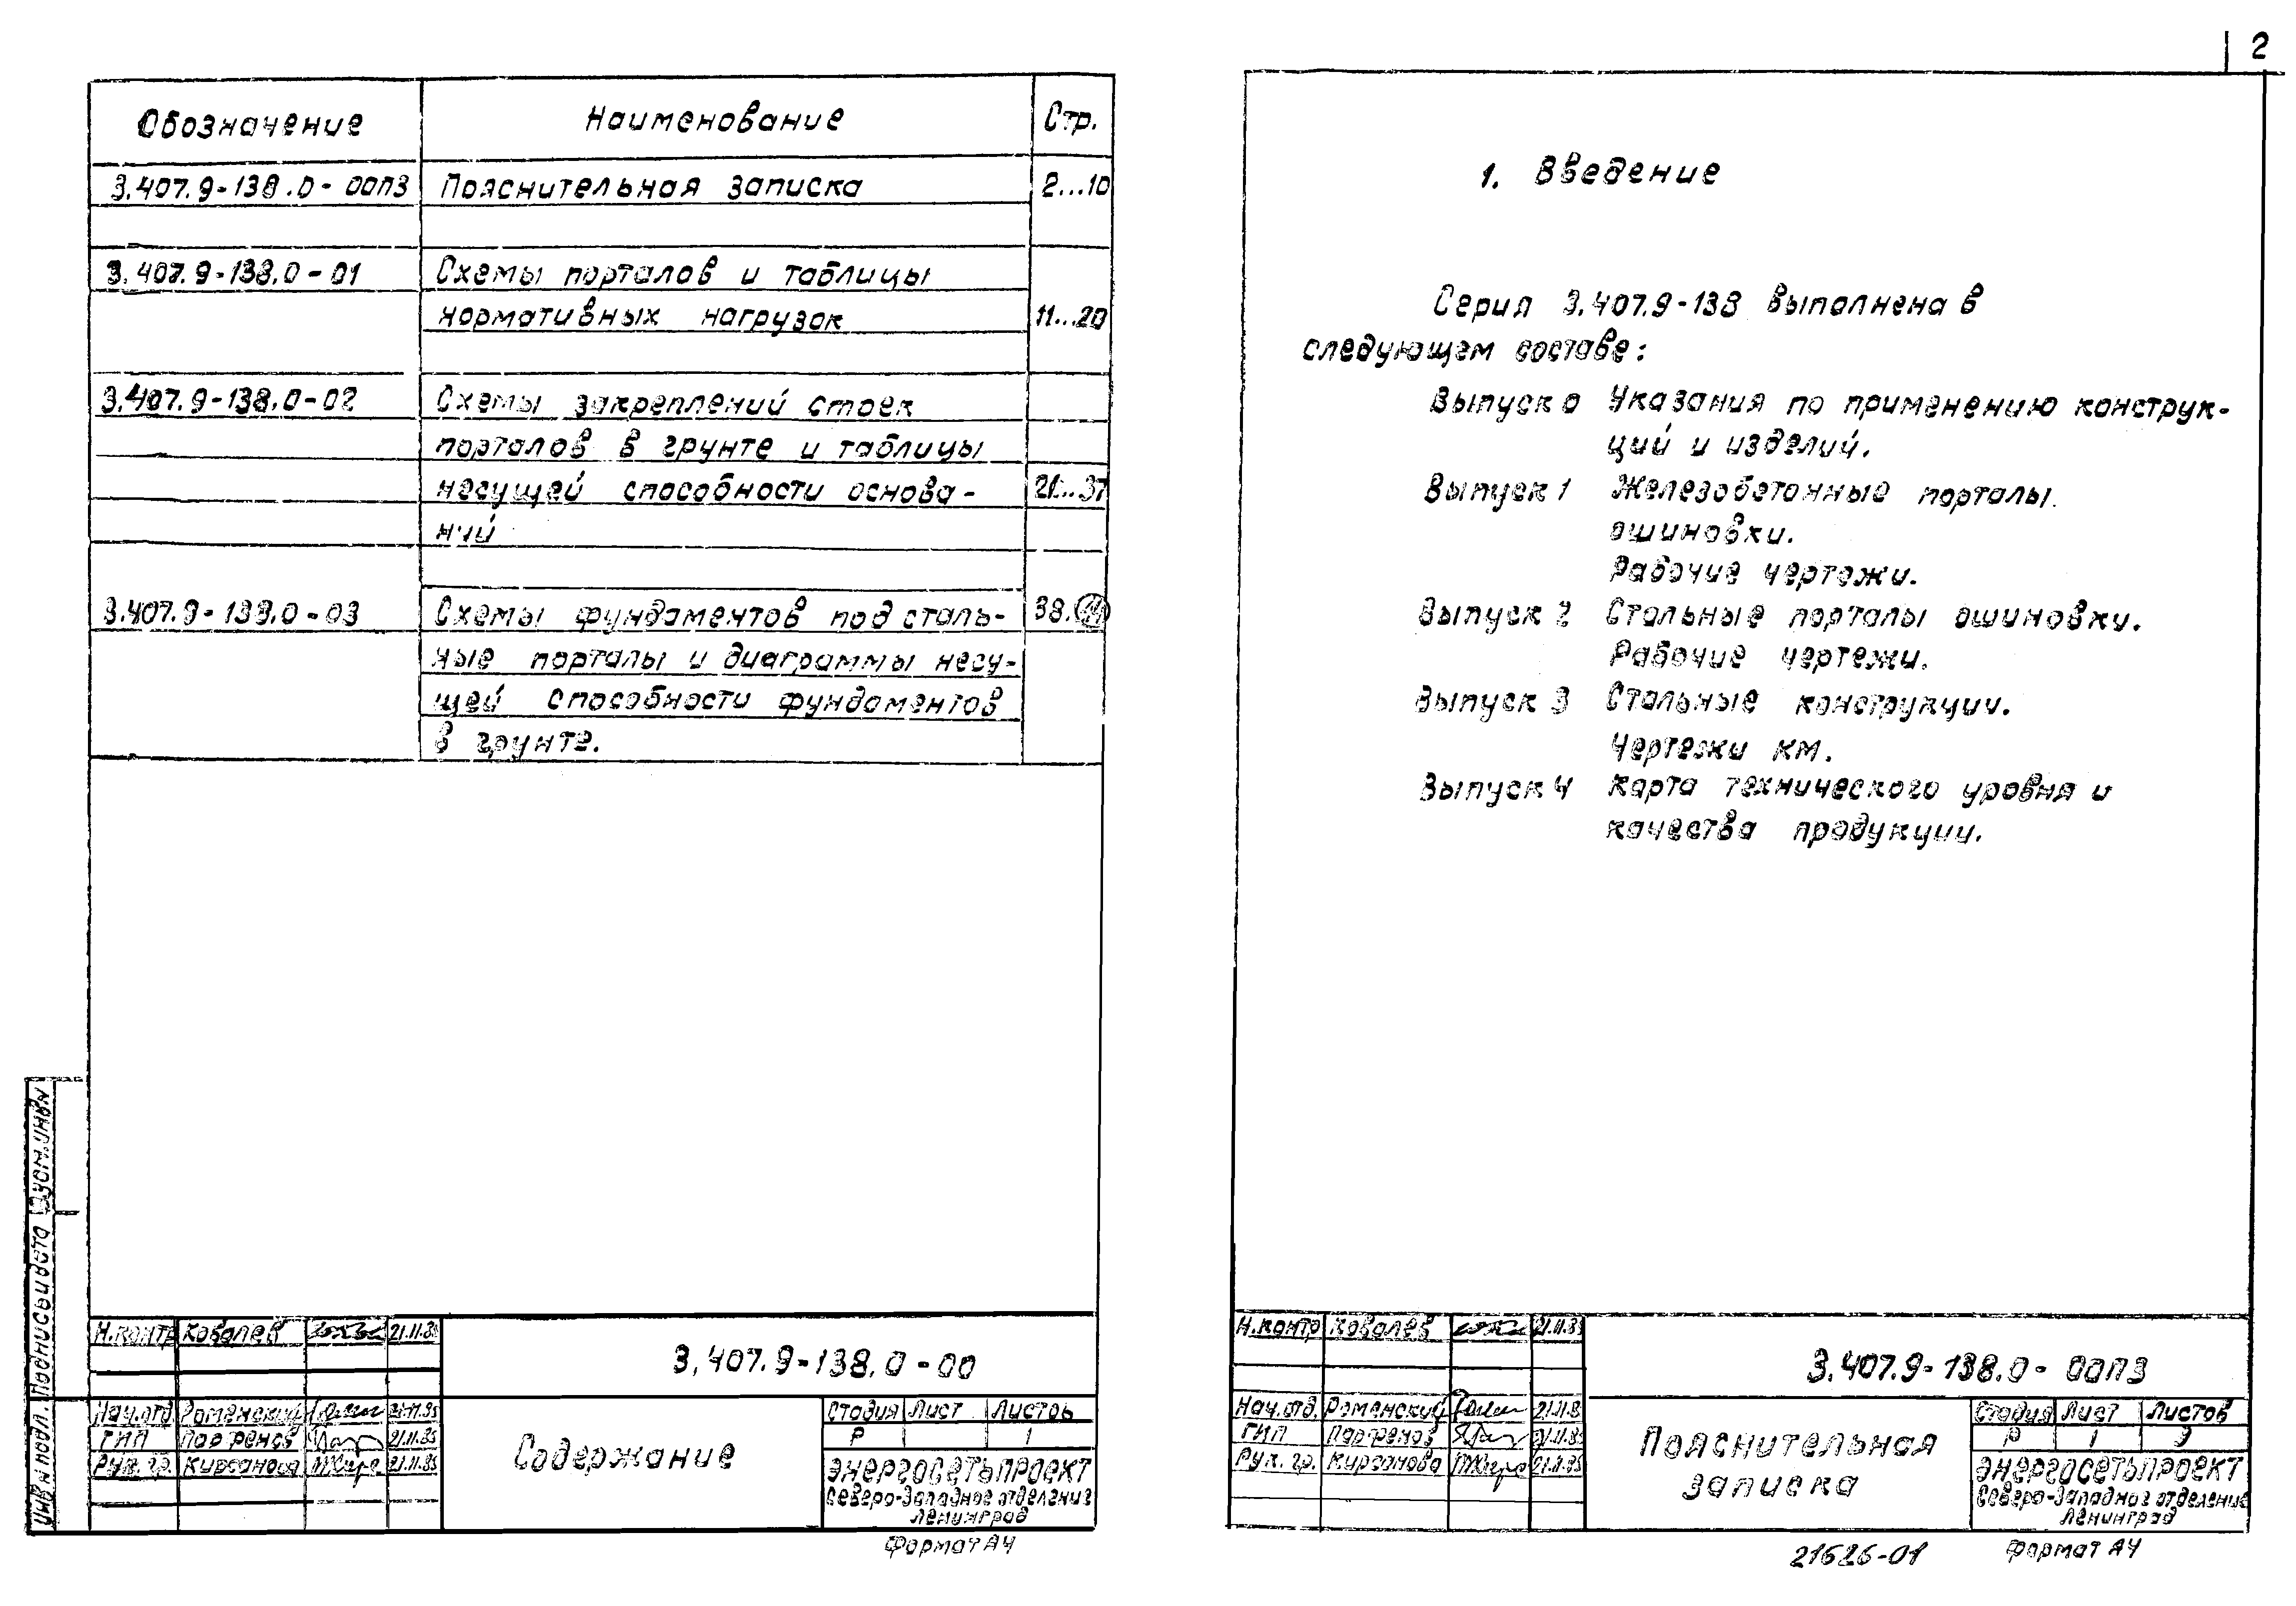 Обозначение Наименование Стр.
3.407.9-138.0-00ПЗ Пояснительная записка 2...10
3.407.9-138.0-01 Схемы порталов и таблицы
нормативных нагрузок 11...20
3.407.9-138.0-02 Схемы закреплений стоек
порталов в грунте и таблицы
несущей способности основа- 21...37
ний
3.407.9-138.0-03 Схемы фундаментов под сталь- 38.
ные порталы и диаграммы несу-
щей способности фундаментов
в грунте.
Инв.№ подл. Подпись и дата Взам.инв.№
Н.контр Ковалев 21.11.85
3.407.9-138.0-00
Нач.отд. Роменский 21.11.85
ГИП Парфенов 21.11.85
Рук. гр. Кирсанова 21.11.85
Содержание
Стадия Лист Листов
Р 1
ЭНЕРГОСЕТЬПРОЕКТ
Северо-Западное отделение
Ленинград
Формат А4
2
1. Введение
Серия 3.407.9-138 выполнена в
следующем составе:
Выпуск 0 Указания по применению конструк-
ций и изделий.
Выпуск 1 Железобетонные порталы
ошиновки.
Рабочие чертежи.
Выпуск 2 Стальные порталы ошиновки.
Рабочие чертежи.
Выпуск 3 Стальные конструкции.
Чертежи КМ.
Выпуск 4 Карта технического уровня и
качества продукции.
Н.контр Ковалев 21.11.85
3.407.9-138.0-00ПЗ
Нач.отд. Роменский 21.11.85
ГИП Парфенов 21.11.85
Рук. гр. Кирсанова 21.11.85
Пояснительная
записка
Стадия Лист Листов
Р 1 9
ЭНЕРГОСЕТЬПРОЕКТ
Северо-Западное отделение
Ленинград
21626-01 Формат А4